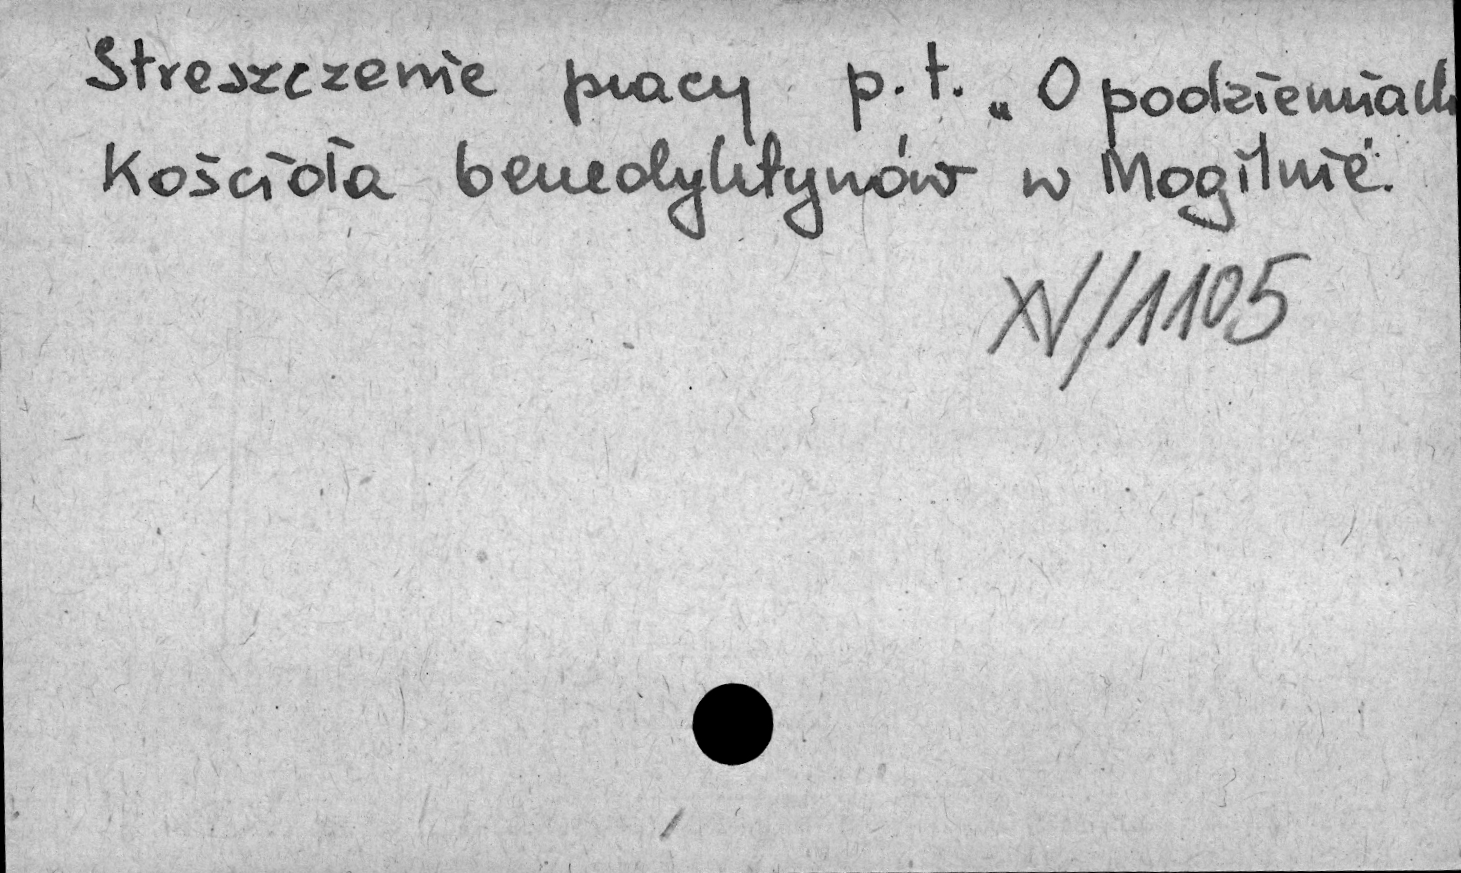 Streszczenie pracy p.t. „O podziemiach
Kościoła benedyktynów w Mogilnie".
XV/1105